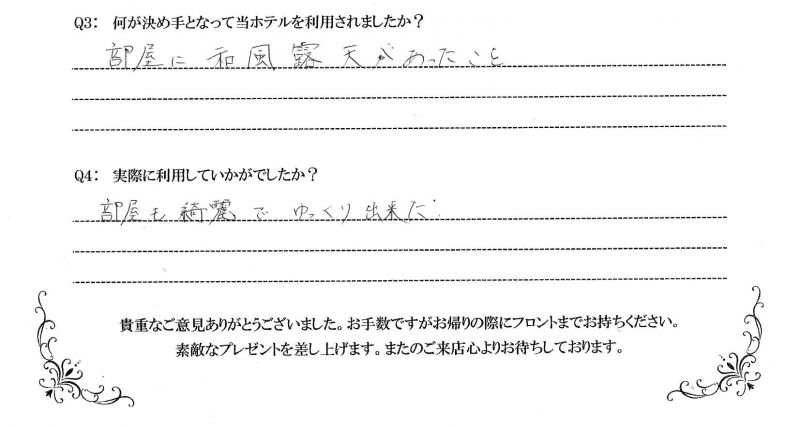 Q3: 何が決め手となって当ホテルを利用されましたか？
部屋に 和風露天があったこと
Q4: 実際に利用していかがでしたか？
部屋も綺麗で ゆっくり出来た。
貴重なご意見ありがとうございました。お手数ですがお帰りの際にフロントまでお持ちください。
素敵なプレゼントを差し上げます。またのご来店心よりお待ちしております。